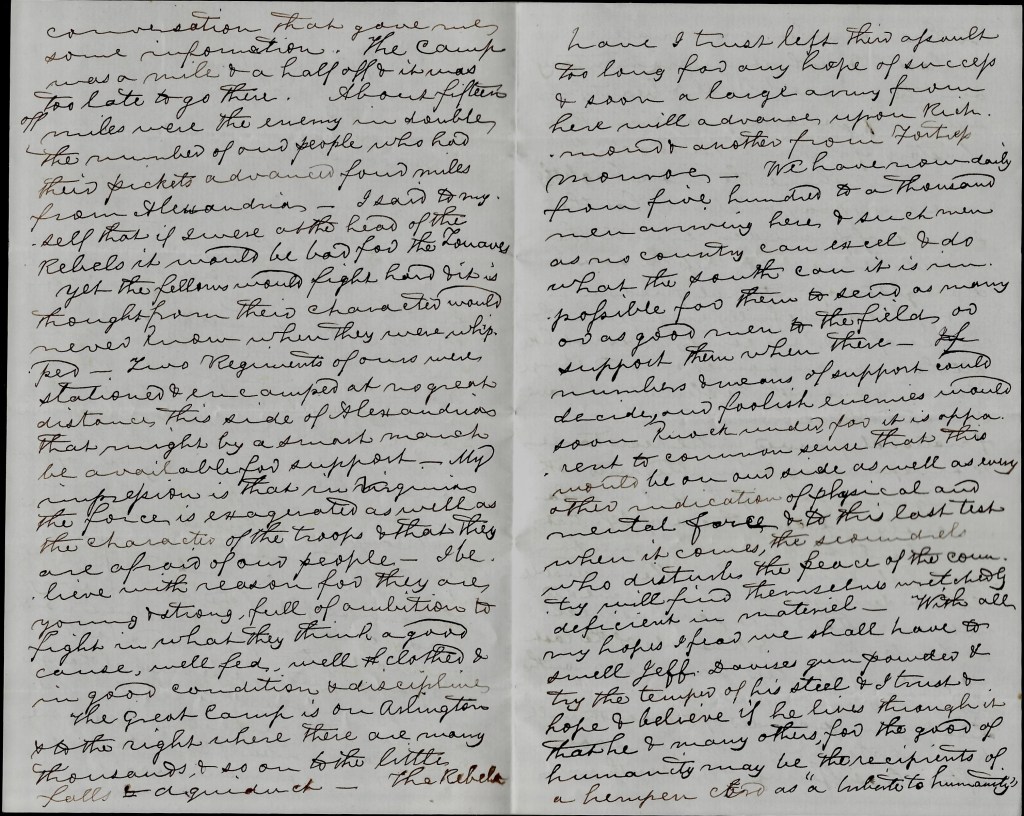 conversation that gave me
some infomation. The Camp
was a mile & a half off & it was
too late to go there. About fifteen
off miles were the enemy in double
the number of our people who had
their pickets advanced four miles
from Alexandria — I said to my-
-self that if I were at the head of the
Rebels it would be bad for the Zouaves
yet the fellows would fight hard & it is
thought from their character would
never know when they were whip-
ped — Two Regiments of ours were
stationed & encamped at no great
distance this side of Alexandria
that might by a smart march
be available for support — My
impression is that in Virginia
the force is exagerated as well as
the character of the troops & that they
are afraid of our people — I be-
-lieve with reason for they are
young & strong, full of ambition to
fight in what they think a good
cause, well fed, well clothed &
in good condition & discipline
The great Camp is on Arlington
& to the right where there are many
thousands, & so on to the little
falls & aquiduct — The Rebels
have I trust left their assault
too long for any hope of success
& soon a large army from
here will advance upon Rich-
-mond & another from Fortress
Monroe — We have now daily
from five hundred to a thousand
men arriving here & such men
as no country can excel & do
what the south can it is im-
-possible for them to send as many
or as good men to the field, or
support them when there — If
numbers & means of support could
decide, our foolish enemies would
soon knock under, for it is appa-
-rent to common sense that this
would be on our side as well as every
other indication of physical and
mental force & to this last test
when it comes, the scoundrels
who disturb the peace of the coun-
try will find themselves wretchedly
deficient in materiel — With all
my hopes I fear we shall have to
smell Jeff. Davises gun powder &
try the temper of his steel & I trust &
hope & believe if he lives through it
that he & many others, for the good of
humanity may be the recipients of
a hempen cord as "a tribute to humanity"